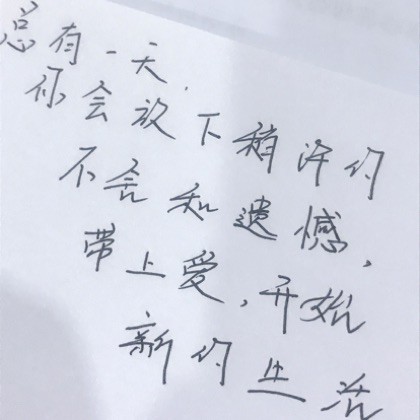 总有一天,
你会放下稍许的
不舍和遗憾,
带上爱,开始
新的生活